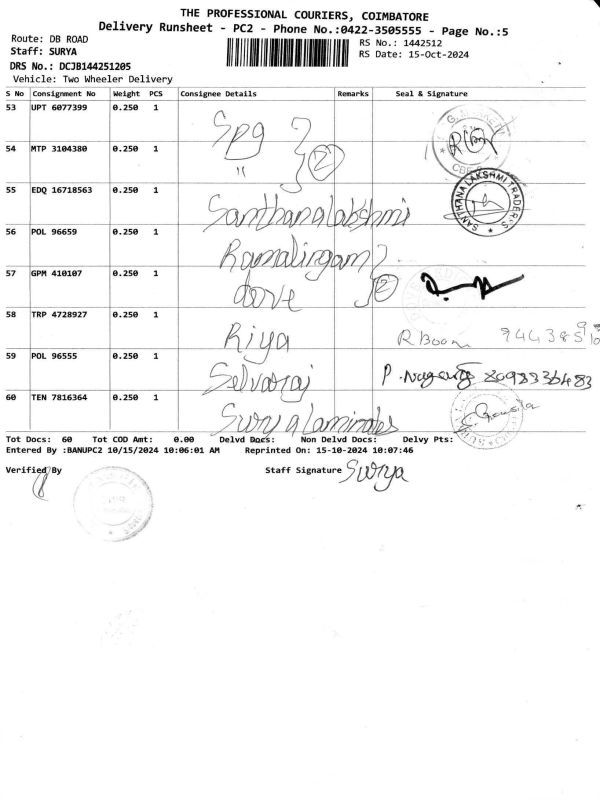 THE PROFESSIONAL COURIERS, COIMBATORE
Delivery Runsheet - PC2 - Phone No.:0422-3505555 - Page No.:5
Route: DB ROAD
RS No.: 1442512
Staff: SURYA
RS Date: 15-Oct-2024
DRS No.: DCJB144251205
Vehicle: Two Wheeler Delivery
S No Consignment No Weight PCS Consignee Details Remarks Seal & Signature
53 UPT 6077399 0.250 1 Spg
54 MTP 3104380 0.250 1 " 2
55 EDQ 16718563 0.250 1 Santhanalakshmi SANTHANALAKSHMI TRADER'S
56 POL 96659 0.250 1 Ramalingam
57 GPM 410107 0.250 1 2
58 TRP 4728927 0.250 1 Riya R Boom
59 POL 96555 0.250 1 Selvaraj
60 TEN 7816364 0.250 1 Surya laminates
Tot Docs: 60 Tot COD Amt: 0.00 Delvd Docs: Non Delvd Docs: Delvy Pts:
Entered By :BANUPC2 10/15/2024 10:06:01 AM Reprinted On: 15-10-2024 10:07:46
Verified By Staff Signature Surya